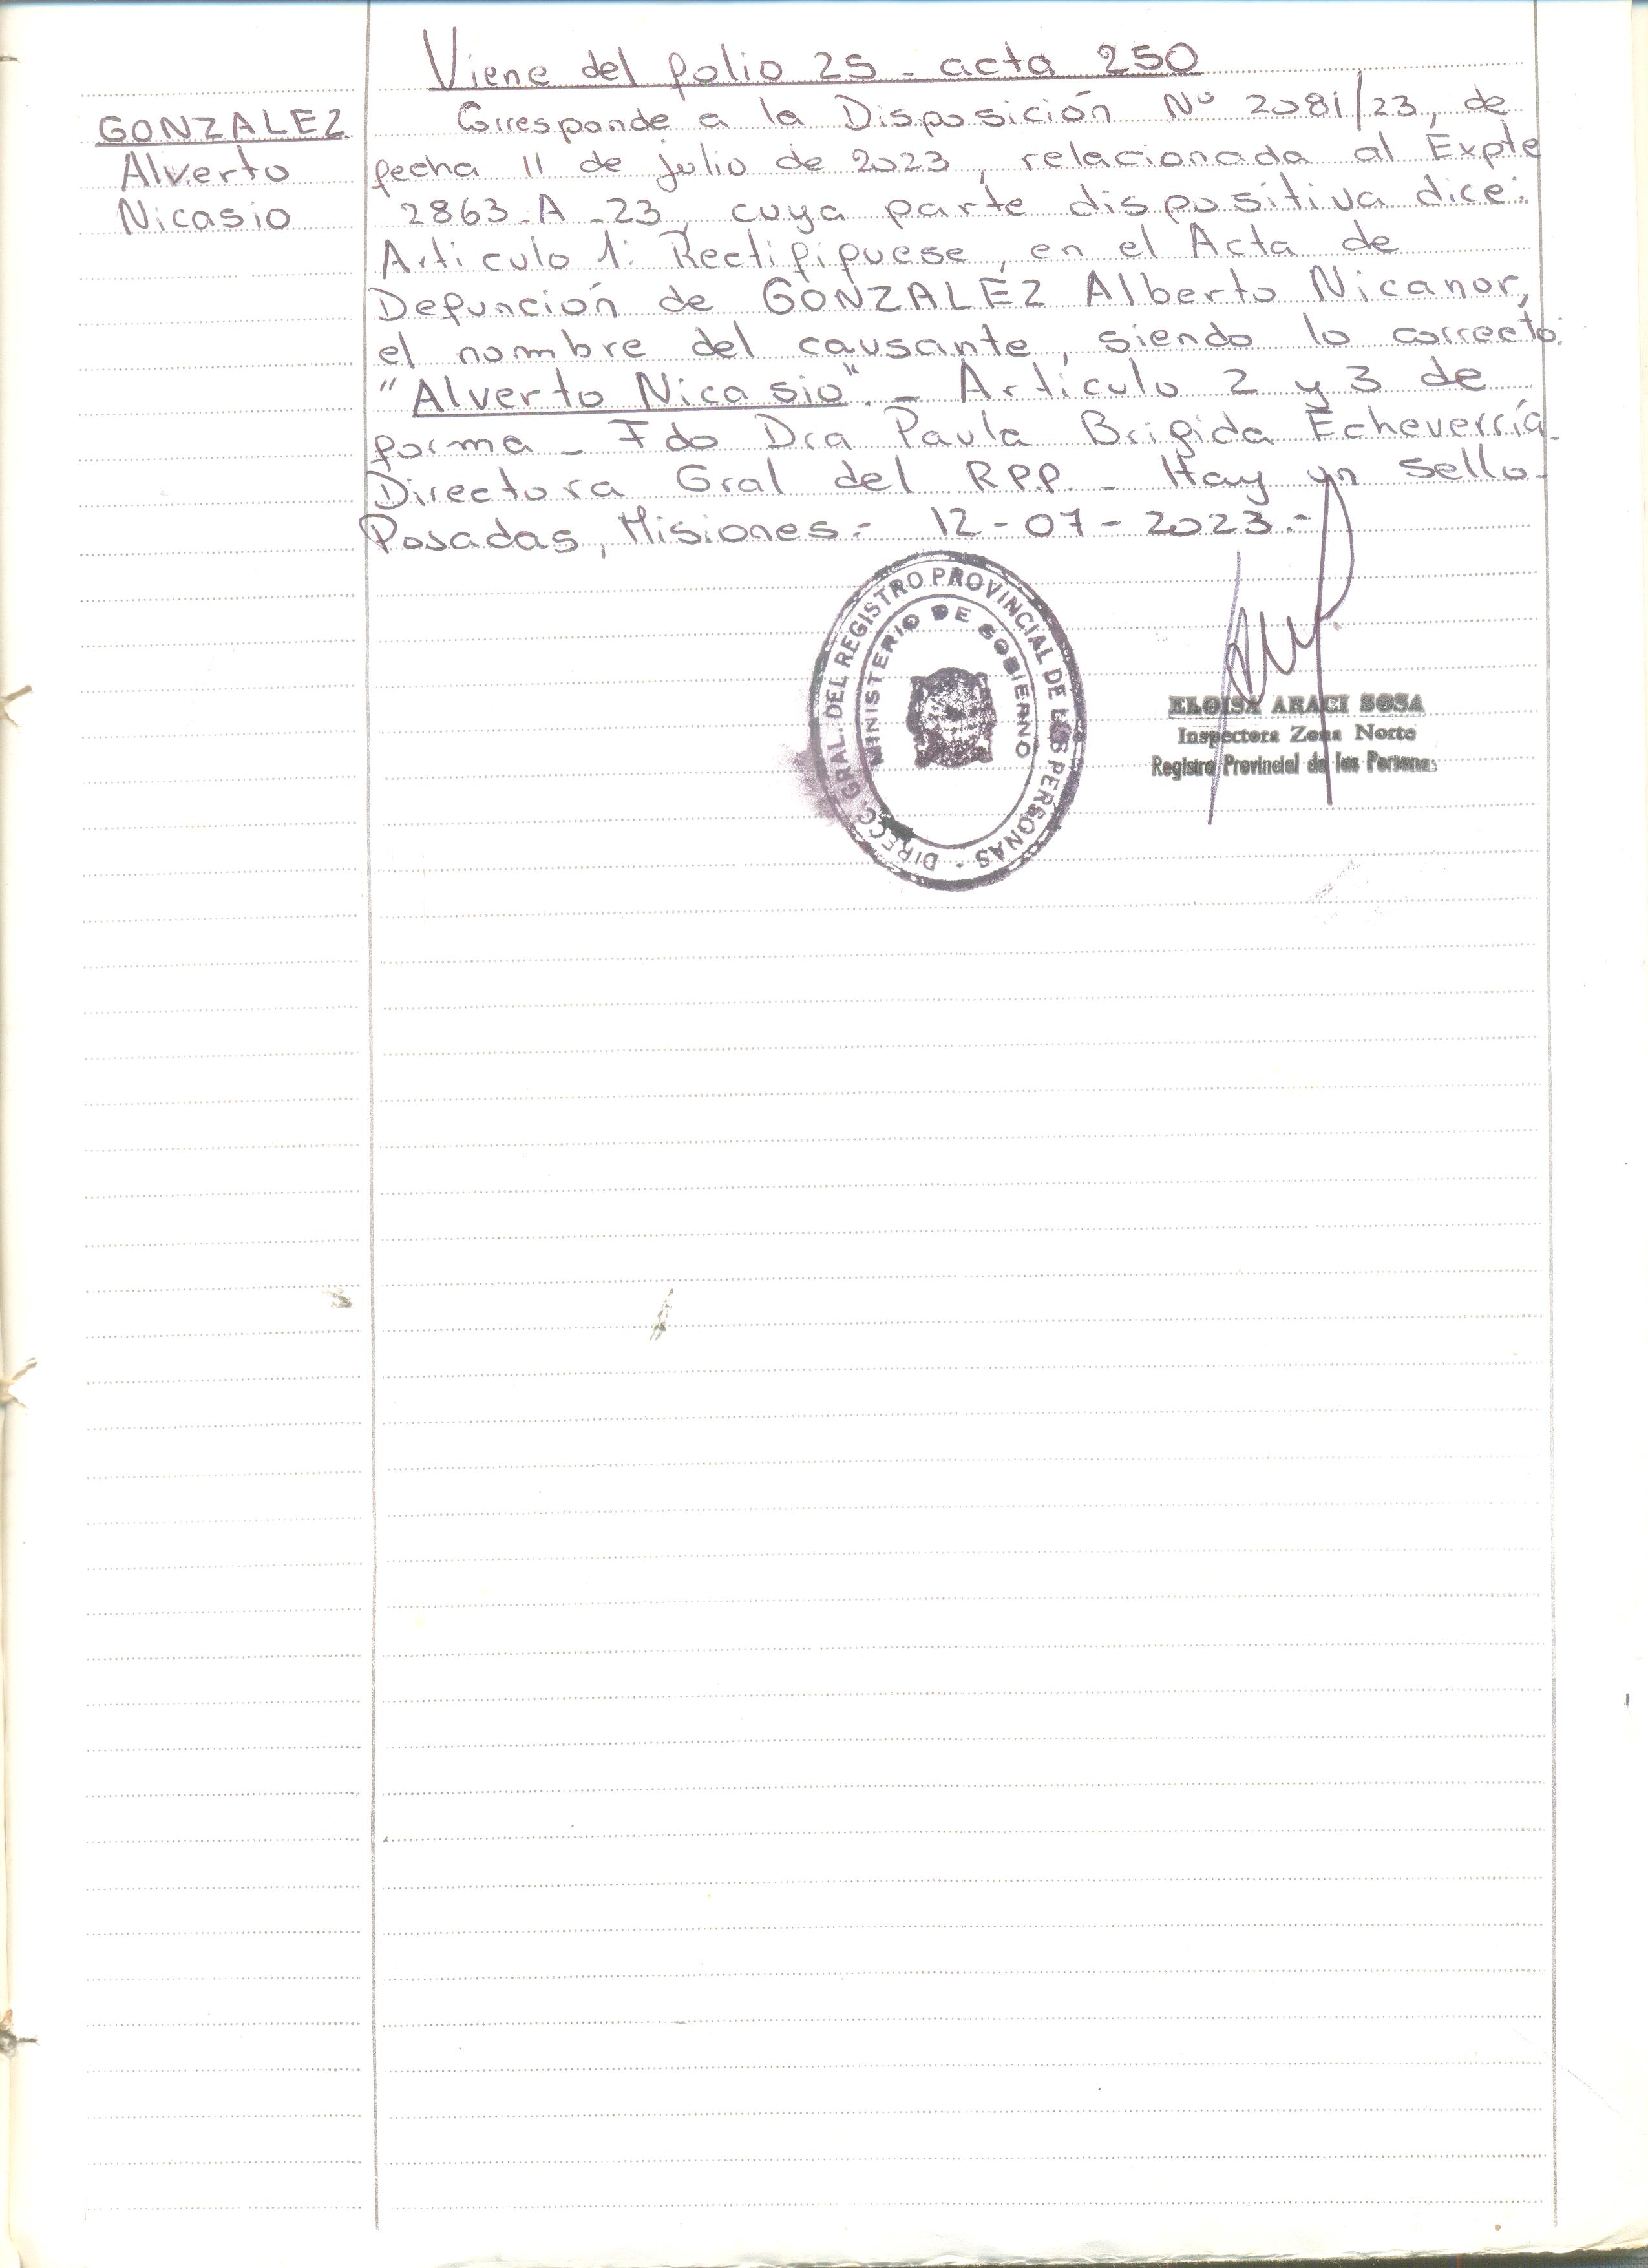 Viene del folio 25 - acta 250
GONZALEZ
Alverto
Nicasio
Corresponde a la Disposición Nº 2081/23, de
fecha 11 de julio de 2023, relacionada al Expte
2863-A-23, cuya parte dispositiva dice:
Artículo 1: Rectifíquese, en el Acta de
Defunción de GONZALEZ Alberto Nicanor,
el nombre del causante, siendo lo correcto:
"Alverto Nicasio".- Artículo 2 y 3 de
forma - Fdo Dra Paula Brigida Echeverría-
Directora Gral del RPP - Hay un sello-
Posadas, Misiones.- 12-07-2023.-
DIRECC. GRAL. DEL REGISTRO PROVINCIAL DE LAS PERSONAS -
MINISTERIO DE GOBIERNO
ELOISA ARACI SOSA
Inspectora Zona Norte
Registro Provincial de las Personas